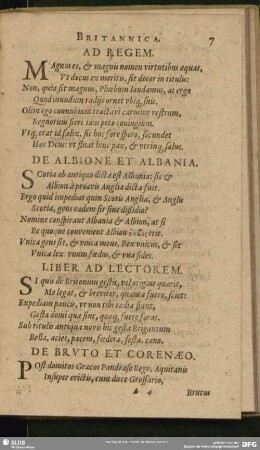 BRITANNICA. 7
AD REGEM.
MAgnus es, & magnũ nomen virtutibus æquas,
Vt decus ex meritis, sit decor in titulu:
Non, quia sit magnus, Phœbum laudamus, at ergo
Quod mundum radijs ornet vbiq; suis,
Olim ego connubium tractavi carmine vestrum,
Regnorum fieri tam peto coniugium.
Vtq; erat id felix, sic hoc fore spero, secundet
Hæc Deus: vt fluat hinc pax, & vtrinq; salus.
DE ALBIONE ET ALBANIA.
SCotia ab antiquo dicta est Albania: sic &
Albion à proavis Anglia dicta fuit.
Ergo quid impediat quin Scotis Anglia, & Anglis
Scotia, gens eadem sit sine dissidio?
Nomine conspirant Albania & Albion, at si
Re quoque convenient Albion erit.
Vnica gens sit, & vnica mens, Rex vnicus, & sit
Vnica lex vnum fœdus, & vna fides.
LIBER AD LECTOREM.
SI quis de Britonum gestis, vel origine quærit,
Me legat, & breviter, quanta fuere, sciet:
Expediam paucis, vt non tibi tædia fiant,
Gesta domi quæ sint, quæq; fuere foras.
Sub titulis antiqua novis hic gesta Brigantum
Bella, acies, pacem, fœdera, festa, cano.
DE BRVTO ET CORENÆO.
POst domitos Græcos Pandraso Rege, Aquitanis
Insuper evictis, cum duce Groffario,
A 4 Brutus
SLUB